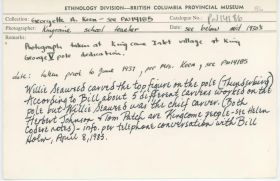 ETHNOLOGY DIVISION—BRITISH COLUMBIA PROVINCIAL MUSEUM
Collection: Georgette A. Koch - see PN14185 Catalogue No.: PN14186
Photographer: Kingcome school teacher Date: see below mid 1930's
Remarks:
Photograph taken at Kingcome Inlet village at King
George V pole dedication.
date: taken prior to June 1937, per Mrs.
Willie Seaweed carved the top figure on the pole (Thunderbird)
According to Bill about 5 different carvers worked on the
pole but Willie Seaweed was the chief carver. (Both
Herbert Johnson & Tom Patch are Kingcome people - see Helen
Codere notes) - info. per telephone conversation with Bill
Holm, April 8, 1983.